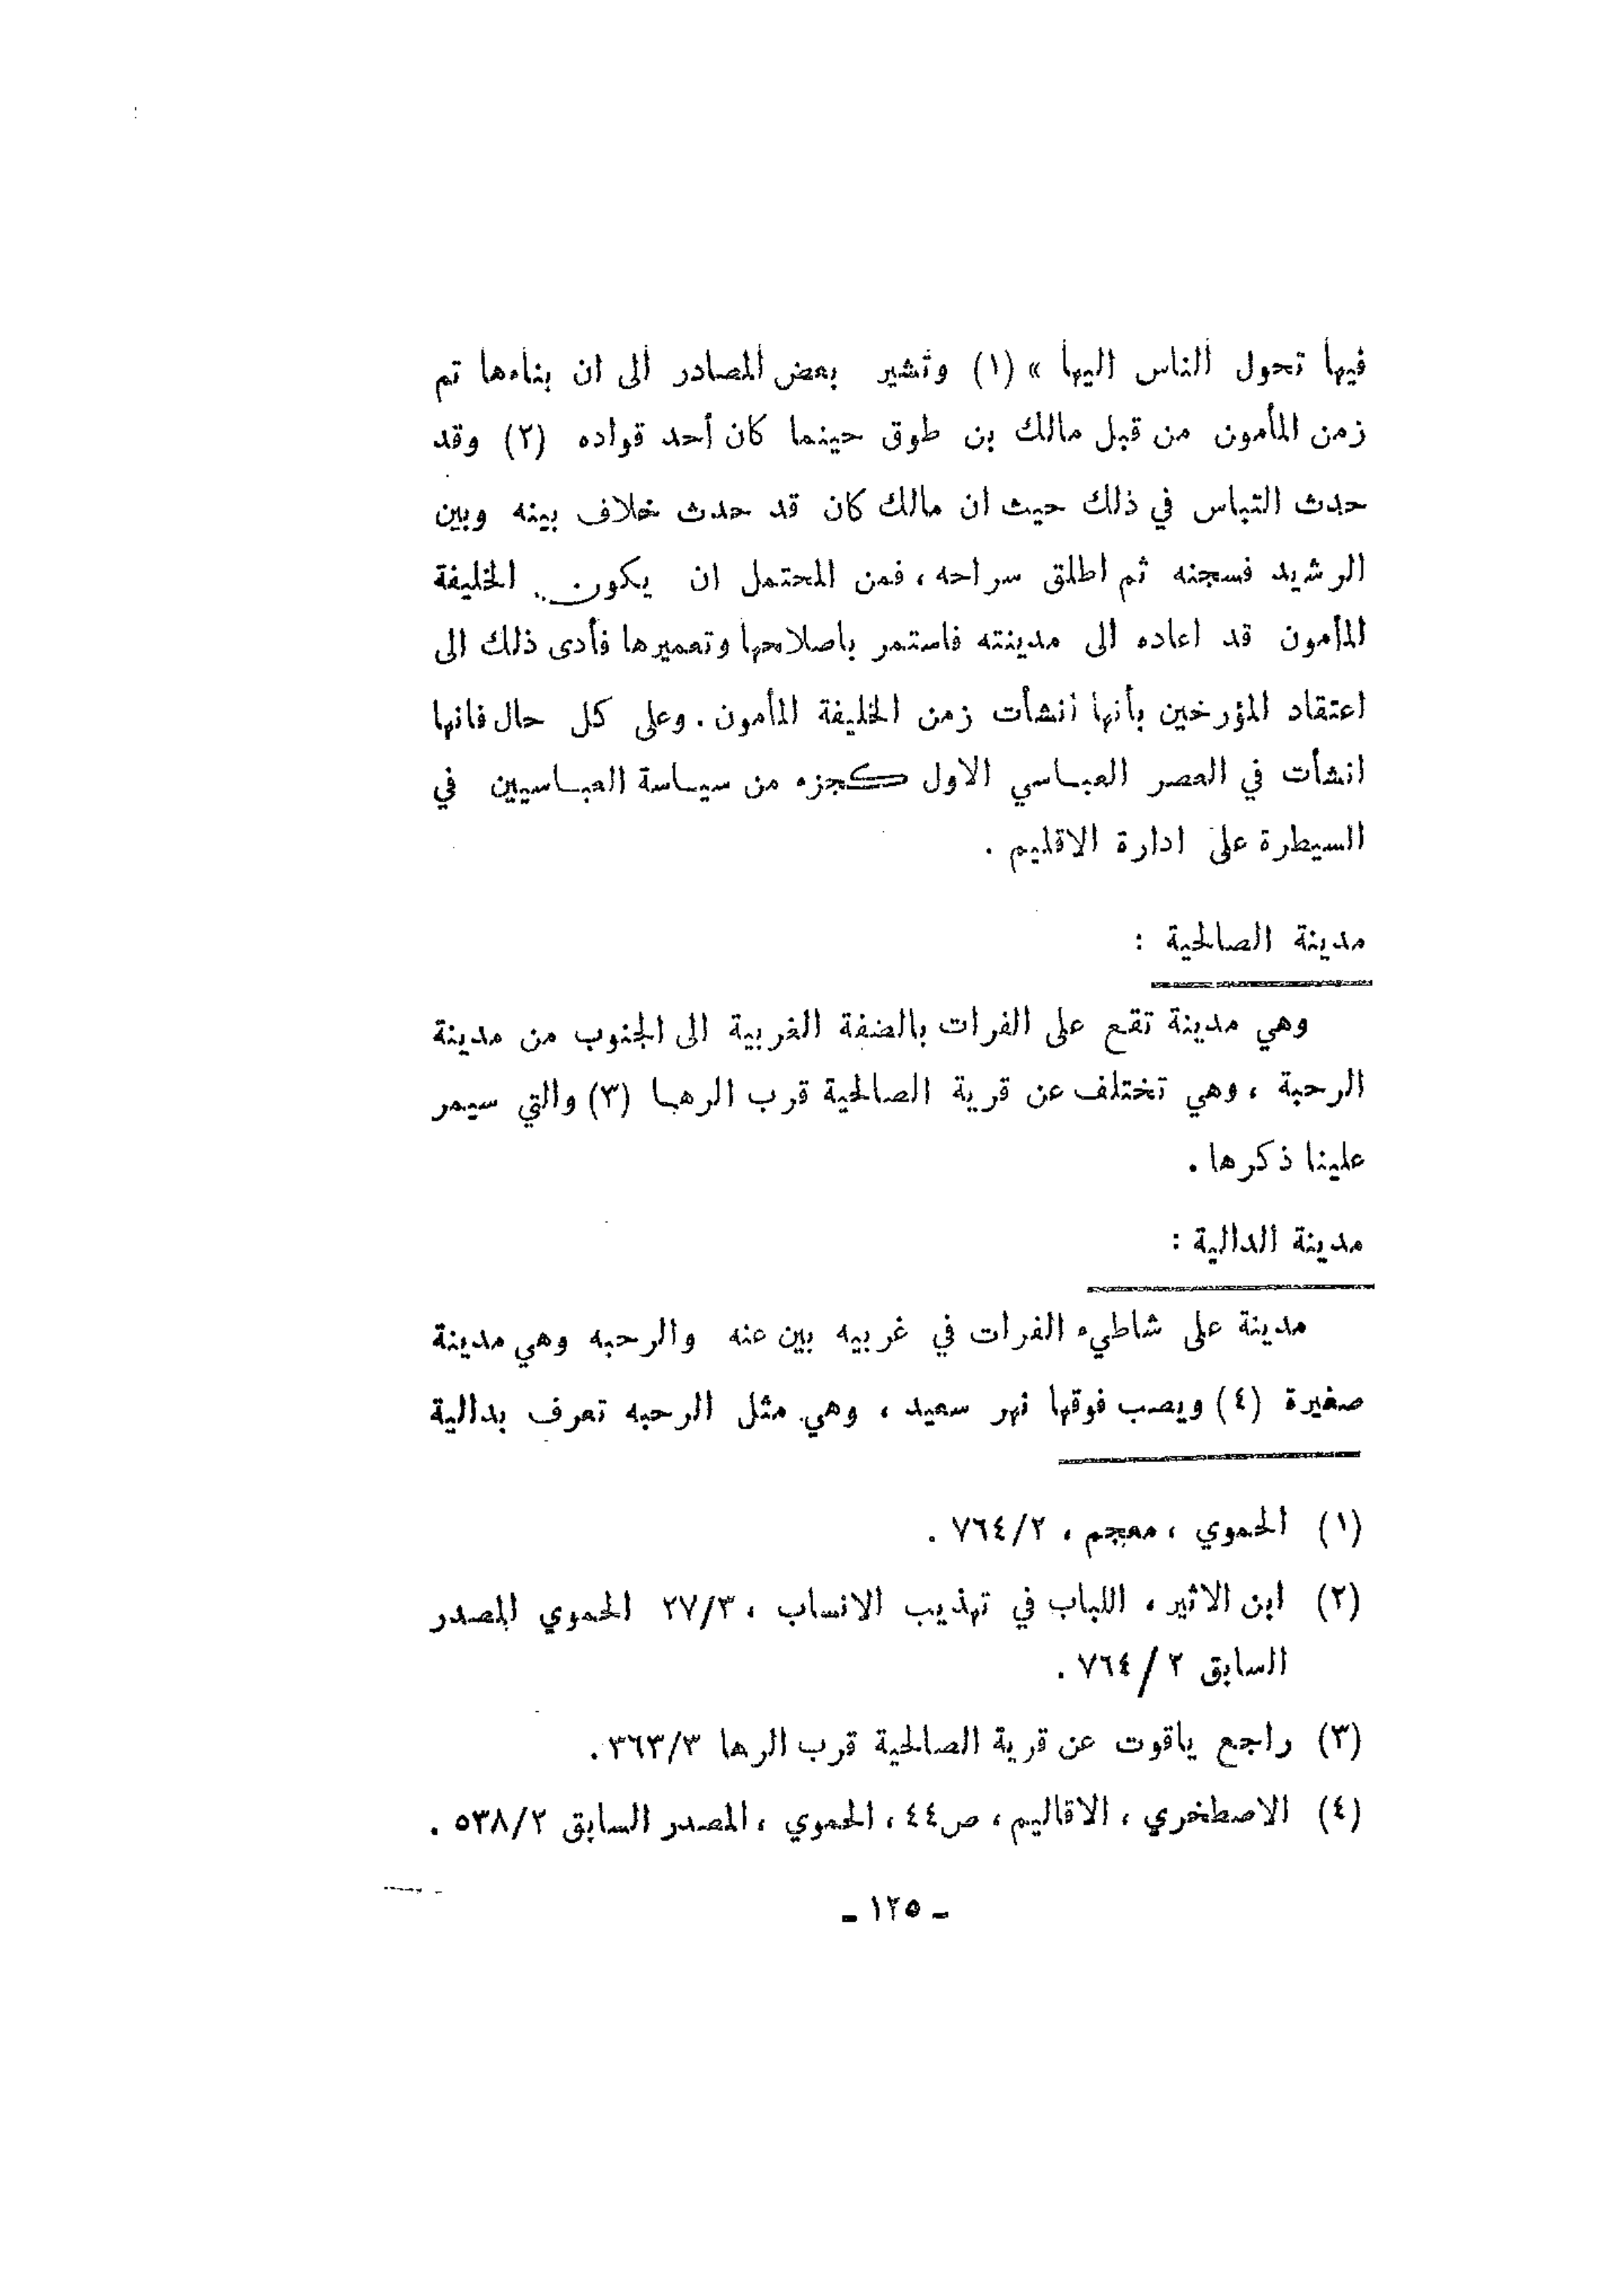 فيها تحول الناس اليها » (١) وتشير بعض المصادر الى ان بناءها تم
زمن المأمون من قبل مالك بن طوق حينما كان أحد قواده (٢) وقد
حدث التباس في ذلك حيث ان مالك كان قد حدث خلاف بينه وبين
الرشيد فسجنه ثم اطلق سراحه ، فمن المحتمل ان يكون الخليفة
المأمون قد اعاده الى مدينته فاستمر باصلاحها وتعميرها فأدى ذلك الى
اعتقاد المؤرخين بأنها أنشأت زمن الخليفة المأمون . وعلى كل حال فانها
انشأت في العصر العباسي الاول كجزء من سياسة العباسيين في
السيطرة على ادارة الاقليم .
مدينة الصالحية :
وهي مدينة تقع على الفرات بالضفة الغربية الى الجنوب من مدينة
الرحبة ، وهي تختلف عن قرية الصالحية قرب الرها (٣) والتي سيمر
علينا ذكرها .
مدينة الدالية :
مدينة على شاطيء الفرات في غربيه بين عنه والرحبه وهي مدينة
صغيرة (٤) ويصب فوقها نهر سعيد ، وهي مثل الرحبه تعرف بدالية
(١) الحموي ، معجم ، ٧٦٤/٢ .
(٢) ابن الاثير ، اللباب في تهذيب الانساب ، ٢٧/٣ الحموي المصدر
السابق ٢ / ٧٦٤ .
(٣) راجع ياقوت عن قرية الصالحية قرب الرها ٣٦٣/٣ .
(٤) الاصطخري ، الاقاليم ، ص٤٤ ، الحموي ، المصدر السابق ٥٣٨/٢ .
ـ ١٢٥ ـ